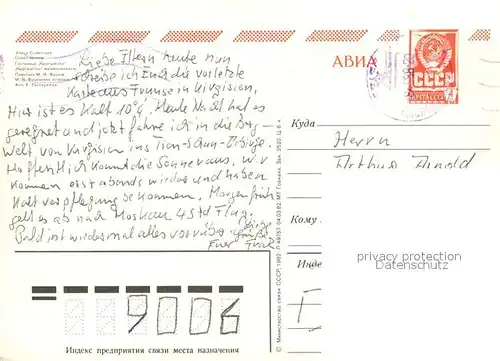 Liebe Eltern heute nun
schreibe ich Euch die vorletzte
Karte aus Frunse in Kirgisien,
Hier ist es Kalt 10°C, Heute Nacht hat es
geregnet und jetzt fahre ich in die Berg-
Welt von Kirgisien ins Tien-Schan-Gebirge.
Hoffentlich kommt die Sonne raus, Wir
kommen erst abends wieder und haben
Kaltverpflegung bekommen, Morgen früh
geht es ab nach Moskau 4 Std Flug.
Bald ist wieder mal alles vorüber
Grüße
Euer
АВИА
СССР
Куда
Herrn
Arthur Arnold
Кому
Инде
privacy protection
Datenschutz
© Министерство связи СССР, 1982
9006
Индекс предприятия связи места назначения